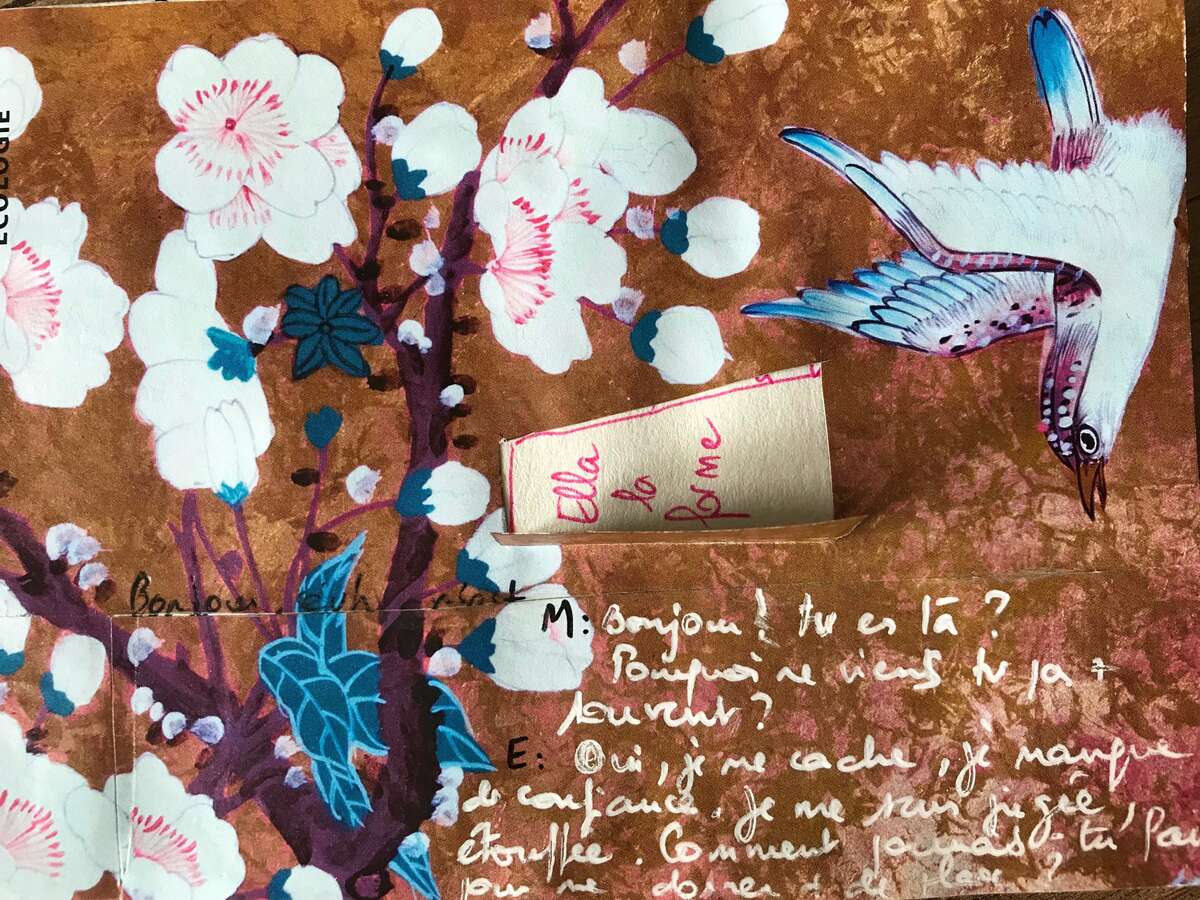 ECOLOGIE
Ella
la
forme
Bonjour
M: Bonjour! tu es là ?
Pourquoi ne viens tu pa +
souvent ?
E: Oui, je me cache, je manque
de confiance. Je me sens jugée,
étouffée. Comment pourrais-tu
pour me donner + de